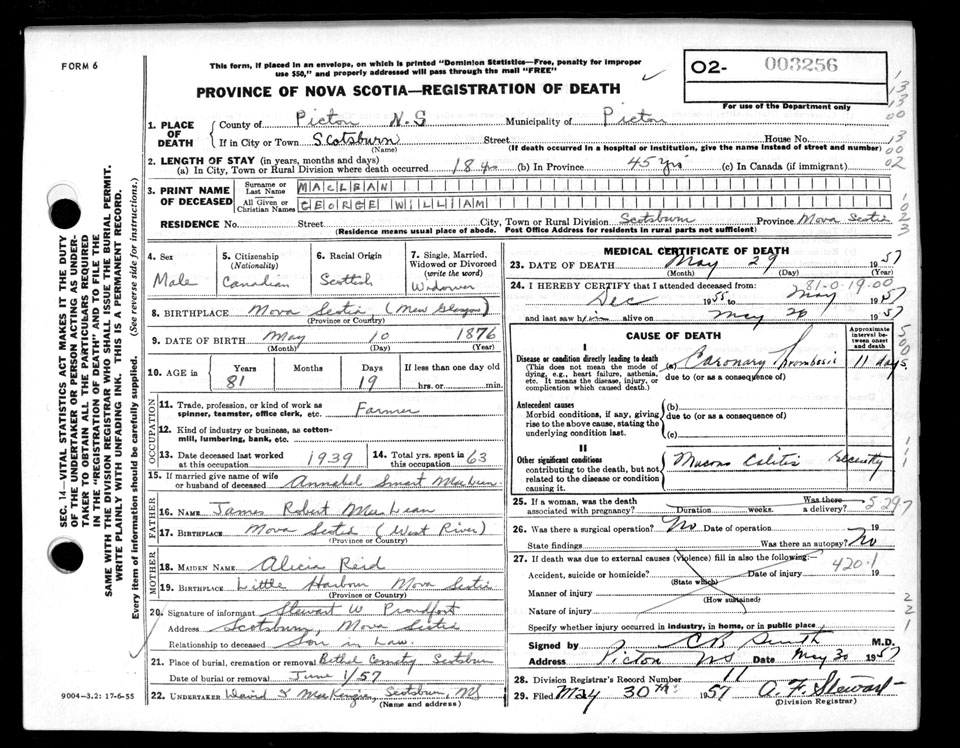 FORM 6
This form, if placed in an envelope, on which is printed "Dominion Statistics—Free, penalty for improper
use $50," and properly addressed will pass through the mail "FREE"
O2- 003256
For use of the Department only
PROVINCE OF NOVA SCOTIA—REGISTRATION OF DEATH
1. PLACE OF DEATH
County of Pictou N.S Municipality of Pictou
If in City or Town Scotsburn Street House No.
(Name) (If death occurred in a hospital or institution, give the name instead of street and number)
2. LENGTH OF STAY (in years, months and days)
(a) In City, Town or Rural Division where death occurred 18 yrs (b) In Province 45 yrs (c) In Canada (if immigrant)
3. PRINT NAME OF DECEASED
Surname or Last Name MACLEAN
All Given or Christian Names GEORGE WILLIAM
RESIDENCE No. Street City, Town or Rural Division Scotsburn Province Nova Scotia
(Residence means usual place of abode. Post Office Address for residents in rural parts not sufficient)
4. Sex Male
5. Citizenship (Nationality) Canadian
6. Racial Origin Scottish
7. Single, Married, Widowed or Divorced (write the word) Widower
8. BIRTHPLACE Nova Scotia (New Glasgow)
(Province or Country)
9. DATE OF BIRTH May 10 1876
(Month) (Day) (Year)
10. AGE Years 81 Months Days 19 If less than one day old hrs. or min.
OCCUPATION
11. Trade, profession, or kind of work as spinner, teamster, office clerk, etc. Farmer
12. Kind of industry or business, as cotton-mill, lumbering, bank, etc.
13. Date deceased last worked at this occupation 1939
14. Total yrs. spent in this occupation 63
15. If married give name of wife or husband of deceased Annabel Smart MacLean
FATHER
16. NAME James Robert MacLean
17. BIRTHPLACE Nova Scotia (West River)
(Province or Country)
MOTHER
18. MAIDEN NAME Alicia Reid
19. BIRTHPLACE Little Harbour Nova Scotia
(Province or Country)
20. Signature of informant Stewart W Proudfoot
Address Scotsburn, Nova Scotia
Relationship to deceased Son in Law.
21. Place of burial, cremation or removal Bethel Cemetery Scotsburn
Date of burial or removal June 1/57
22. UNDERTAKER MacKenzie, Scotsburn, NS
(Name and address)
MEDICAL CERTIFICATE OF DEATH
23. DATE OF DEATH May 29 1957
(Month) (Day) (Year)
24. I HEREBY CERTIFY that I attended deceased from: 81-0-19.00
Dec 1955 to May 1957
and last saw him alive on May 28 1957
CAUSE OF DEATH
Approximate interval between onset and death
I
Disease or condition directly leading to death
(This does not mean the mode of dying, e.g., heart failure, asthenia, etc. It means the disease, injury, or complication which caused death.)
(a) Coronary Thrombosis 11 days.
due to (or as a consequence of)
Antecedent causes
Morbid conditions, if any, giving rise to the above cause, stating the underlying condition last.
(b)
due to (or as a consequence of)
(c)
II
Other significant conditions contributing to the death, but not related to the disease or condition causing it.
Mucous Colitis recently
25. If a woman, was the death associated with pregnancy? Duration weeks. Was there a delivery? 5-29-7
26. Was there a surgical operation? No Date of operation 19
State findings Was there an autopsy? No
27. If death was due to external causes (violence) fill in also the following:
Accident, suicide or homicide? Date of injury 19 420.1
(State which)
Manner of injury
(How sustained)
Nature of injury
Specify whether injury occurred in industry, in home, or in public place
Signed by C B Smith M.D.
Address Pictou NS Date May 30 1957
28. Division Registrar's Record Number 11
29. Filed May 30th 1957 A. F. Stewart
(Division Registrar)
SEC. 14—VITAL STATISTICS ACT MAKES IT THE DUTY
OF THE UNDERTAKER OR PERSON ACTING AS UNDER-
TAKER TO OBTAIN ALL THE PARTICULARS REQUIRED
IN THE "REGISTRATION OF DEATH" AND TO FILE THE
SAME WITH THE DIVISION REGISTRAR WHO SHALL ISSUE THE BURIAL PERMIT.
WRITE PLAINLY WITH UNFADING INK. THIS IS A PERMANENT RECORD.
Every item of information should be carefully supplied. (See reverse side for instructions.)
9004—3.2: 17-6-55